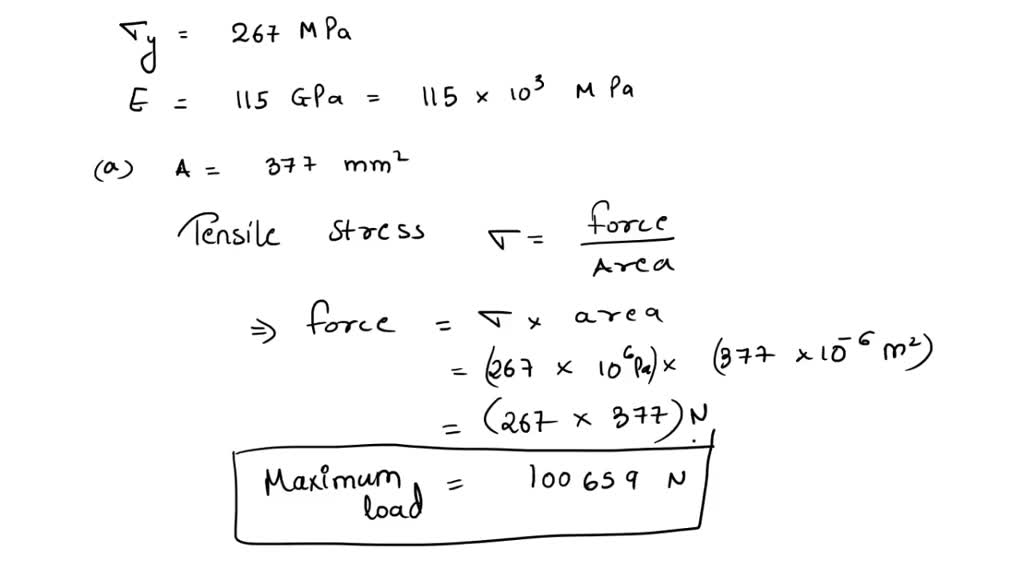 σy = 267 MPa
E = 115 GPa = 115 × 10³ MPa
(a) A = 377 mm²
Tensile stress σ = force / Area
⇒ force = σ × area
= (267 × 10⁶ Pa) × (377 × 10⁻⁶ m²)
= (267 × 377) N
Maximum load = 100659 N